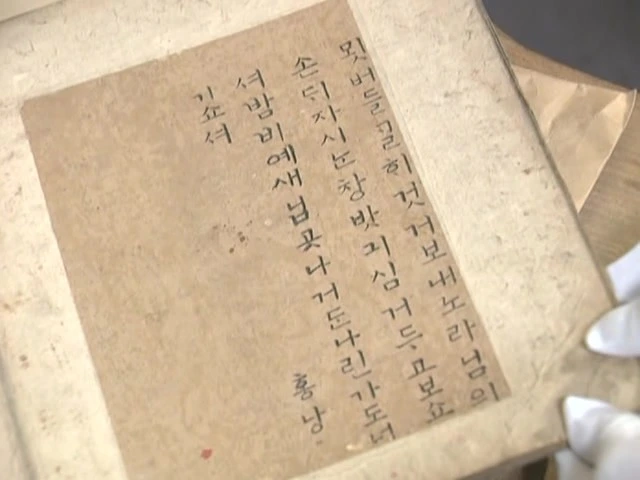 묏버들ᄀᆞᆯ히것거보내노라님의
손ᄃᆡ자시ᄂᆞᆫ창밧긔심거두고보쇼
셔밤비예새닙곳나거든나린가도너
기쇼셔
홍낭